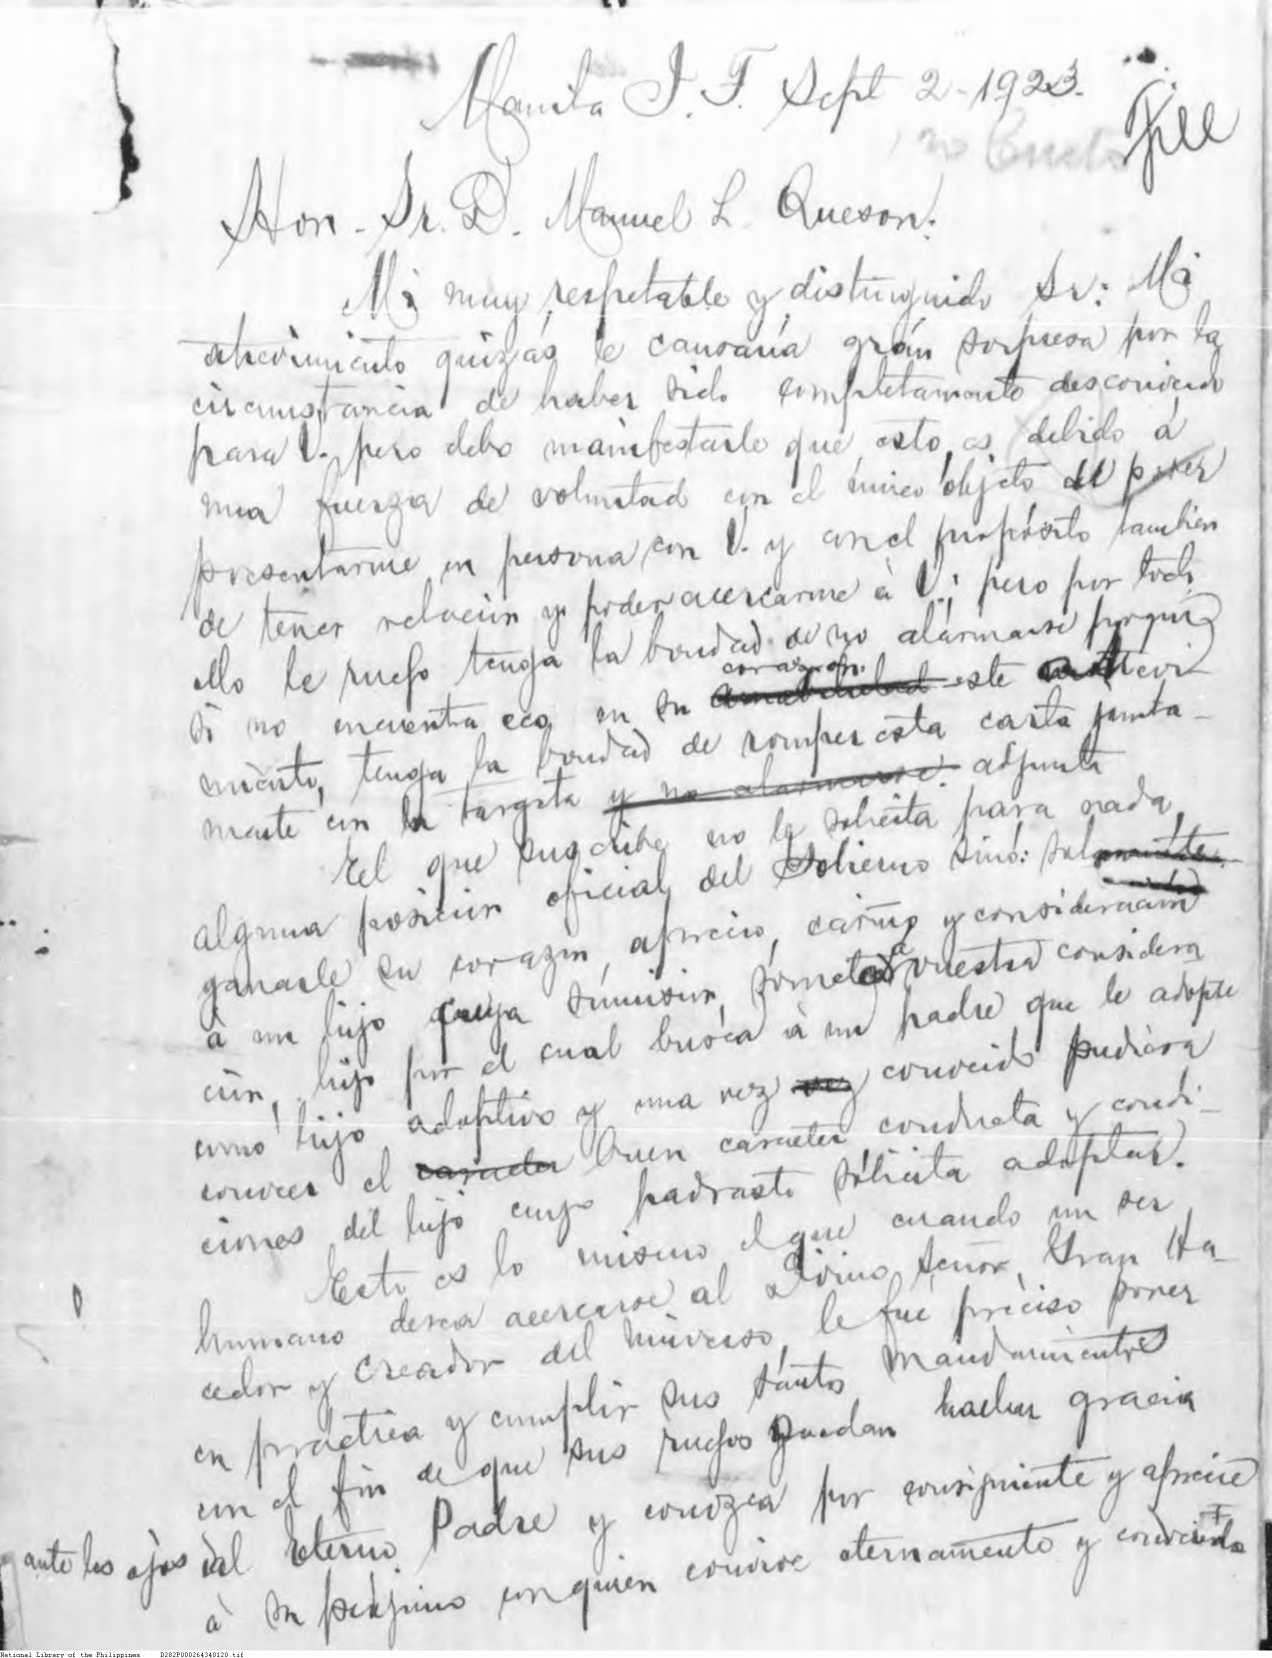 Manila I. F. Sept 2-1923.
File
Hon. Sr. D. Manuel L. Queson:
Mi muy respetable y distinguido Sr: Mi
atrevimiento quizás le causaría grán sorpresa por la
circunstancia de haber sido completamente desconocido
para V. pero debo manifestarle que esto es debido á
una fuerza de voluntad con el único objeto de poder
presentarme en persona con V. y con el propósito tambien
de tener relación y poder acercarme á V.; pero por todo
ello le ruego tenga la bondad de no alarmarse porque
corazon.
si no encuentra eco en su amabilidad este atrevi-
miento, tenga la bondad de romper esta carta junta-
mente con la targeta y no alarmarse adjunta
El que suscribe no le solicita para nada
alguna posición oficial del Gobierno sinó: solamente
ganarle su corazon, aprecio, cariño y consideración
á un hijo cuya sumision, somete á vuestra considera
ción, hijo por el cual busca á un padre que le adopte
como hijo adoptivo y una vez vez conocido pudiera
conocer el caracter buen caracter conducta y condi-
ciones del hijo cuyo padrasto solicita adoptar.
Esto es lo mismo el que cuando un ser
humano desea acercarse al Divino Señor, Gran Ha-
cedor y Creador del Universo, le fué preciso poner
en práctica y cumplir sus santos mandamientos
con el fin de que sus ruegos puedan hacer gracia
ante los ojos del Eterno Padre y conozca por consiguiente y aprecie
á su projimo con quien convive eternamente y
National Library of the Philippines D282P000264340120.tif